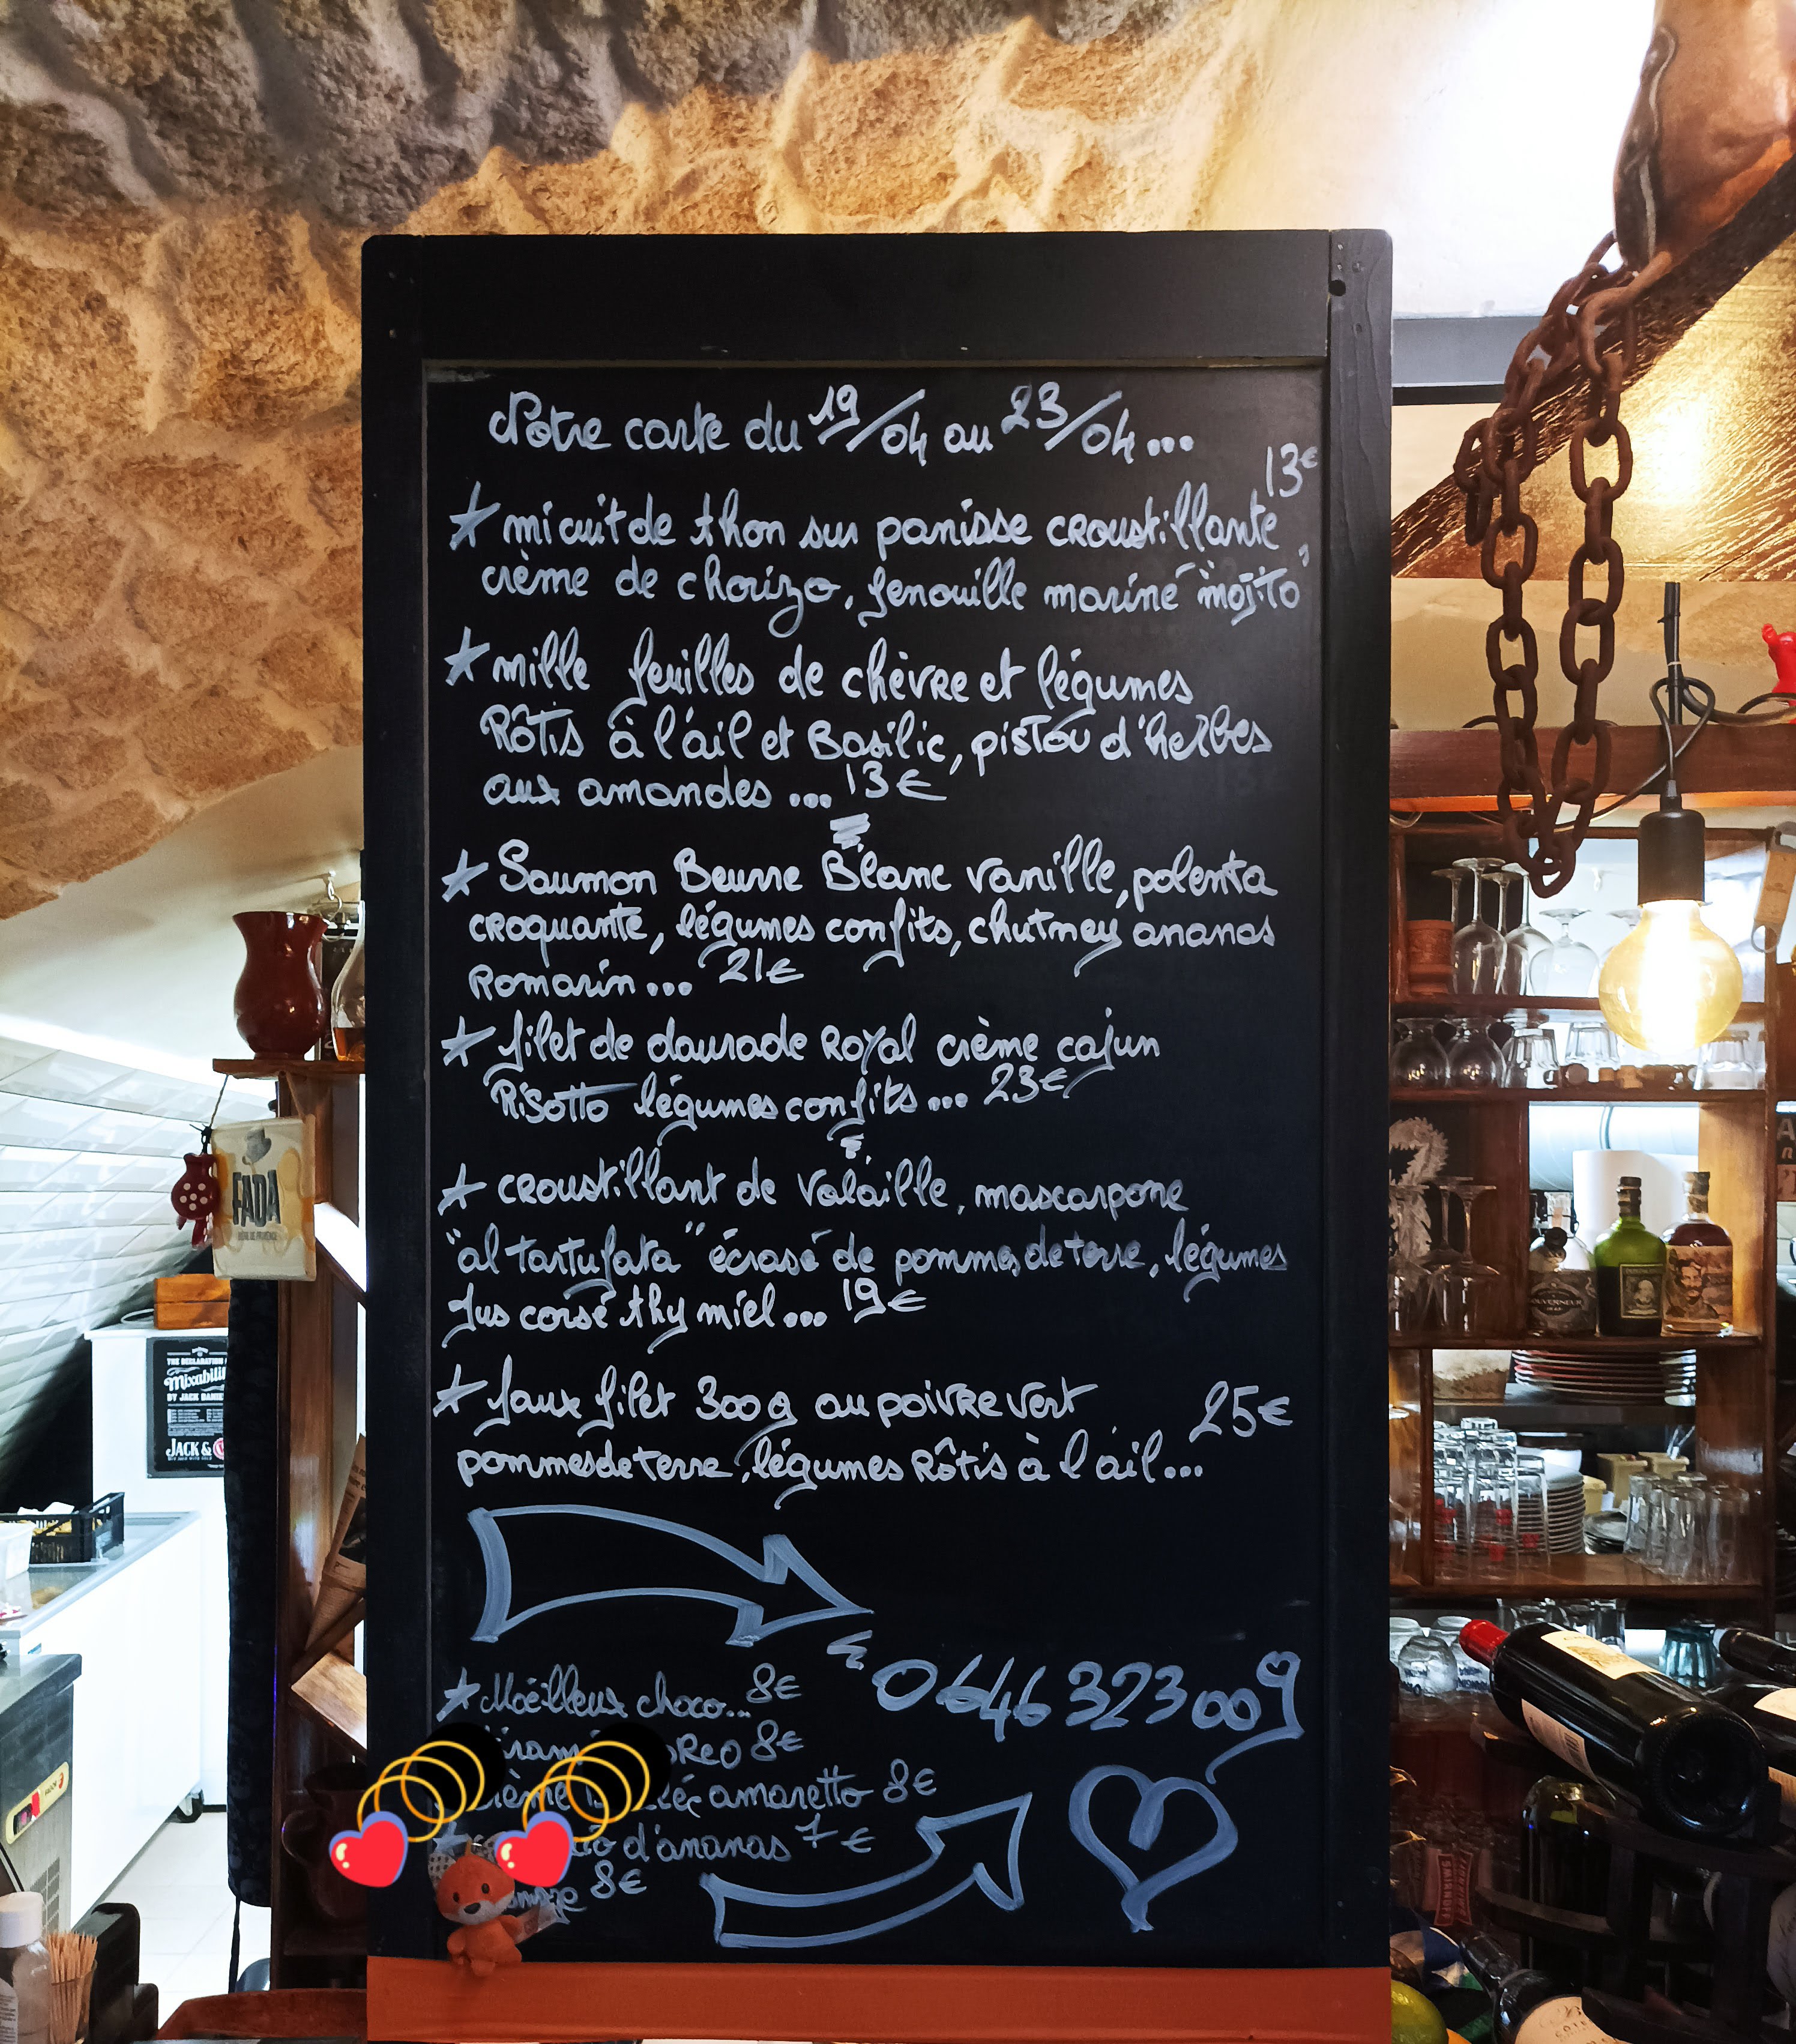 Notre carte du 19/04 au 23/04...
13€
* mi cuit de thon sur panisse croustillante
crème de chorizo, fenouille mariné "mojito"
* mille feuilles de chèvre et légumes
Rôtis à l'ail et Basilic, pistou d'herbes
aux amandes ... 13€
* Saumon Beurre Blanc vanille, polenta
croquante, légumes confits, chutney ananas
Romarin... 21€
* filet de daurade Royal crème cajun
Risotto légumes confits... 23€
* croustillant de volaille, mascarpone
"al tartufata" écrasé de pommes de terre, légumes
Jus corsé thy miel... 19€
* faux filet 300g au poivre vert
25€
pommes de terre, légumes Rôtis à l'ail...
* Moëlleux choco... 8€
0646323009
OREO 8€
amaretto 8€
d'ananas 7€
8€
FADA
THE DECLARATION
Mixabilit
BY JACK DANIE
JACK &